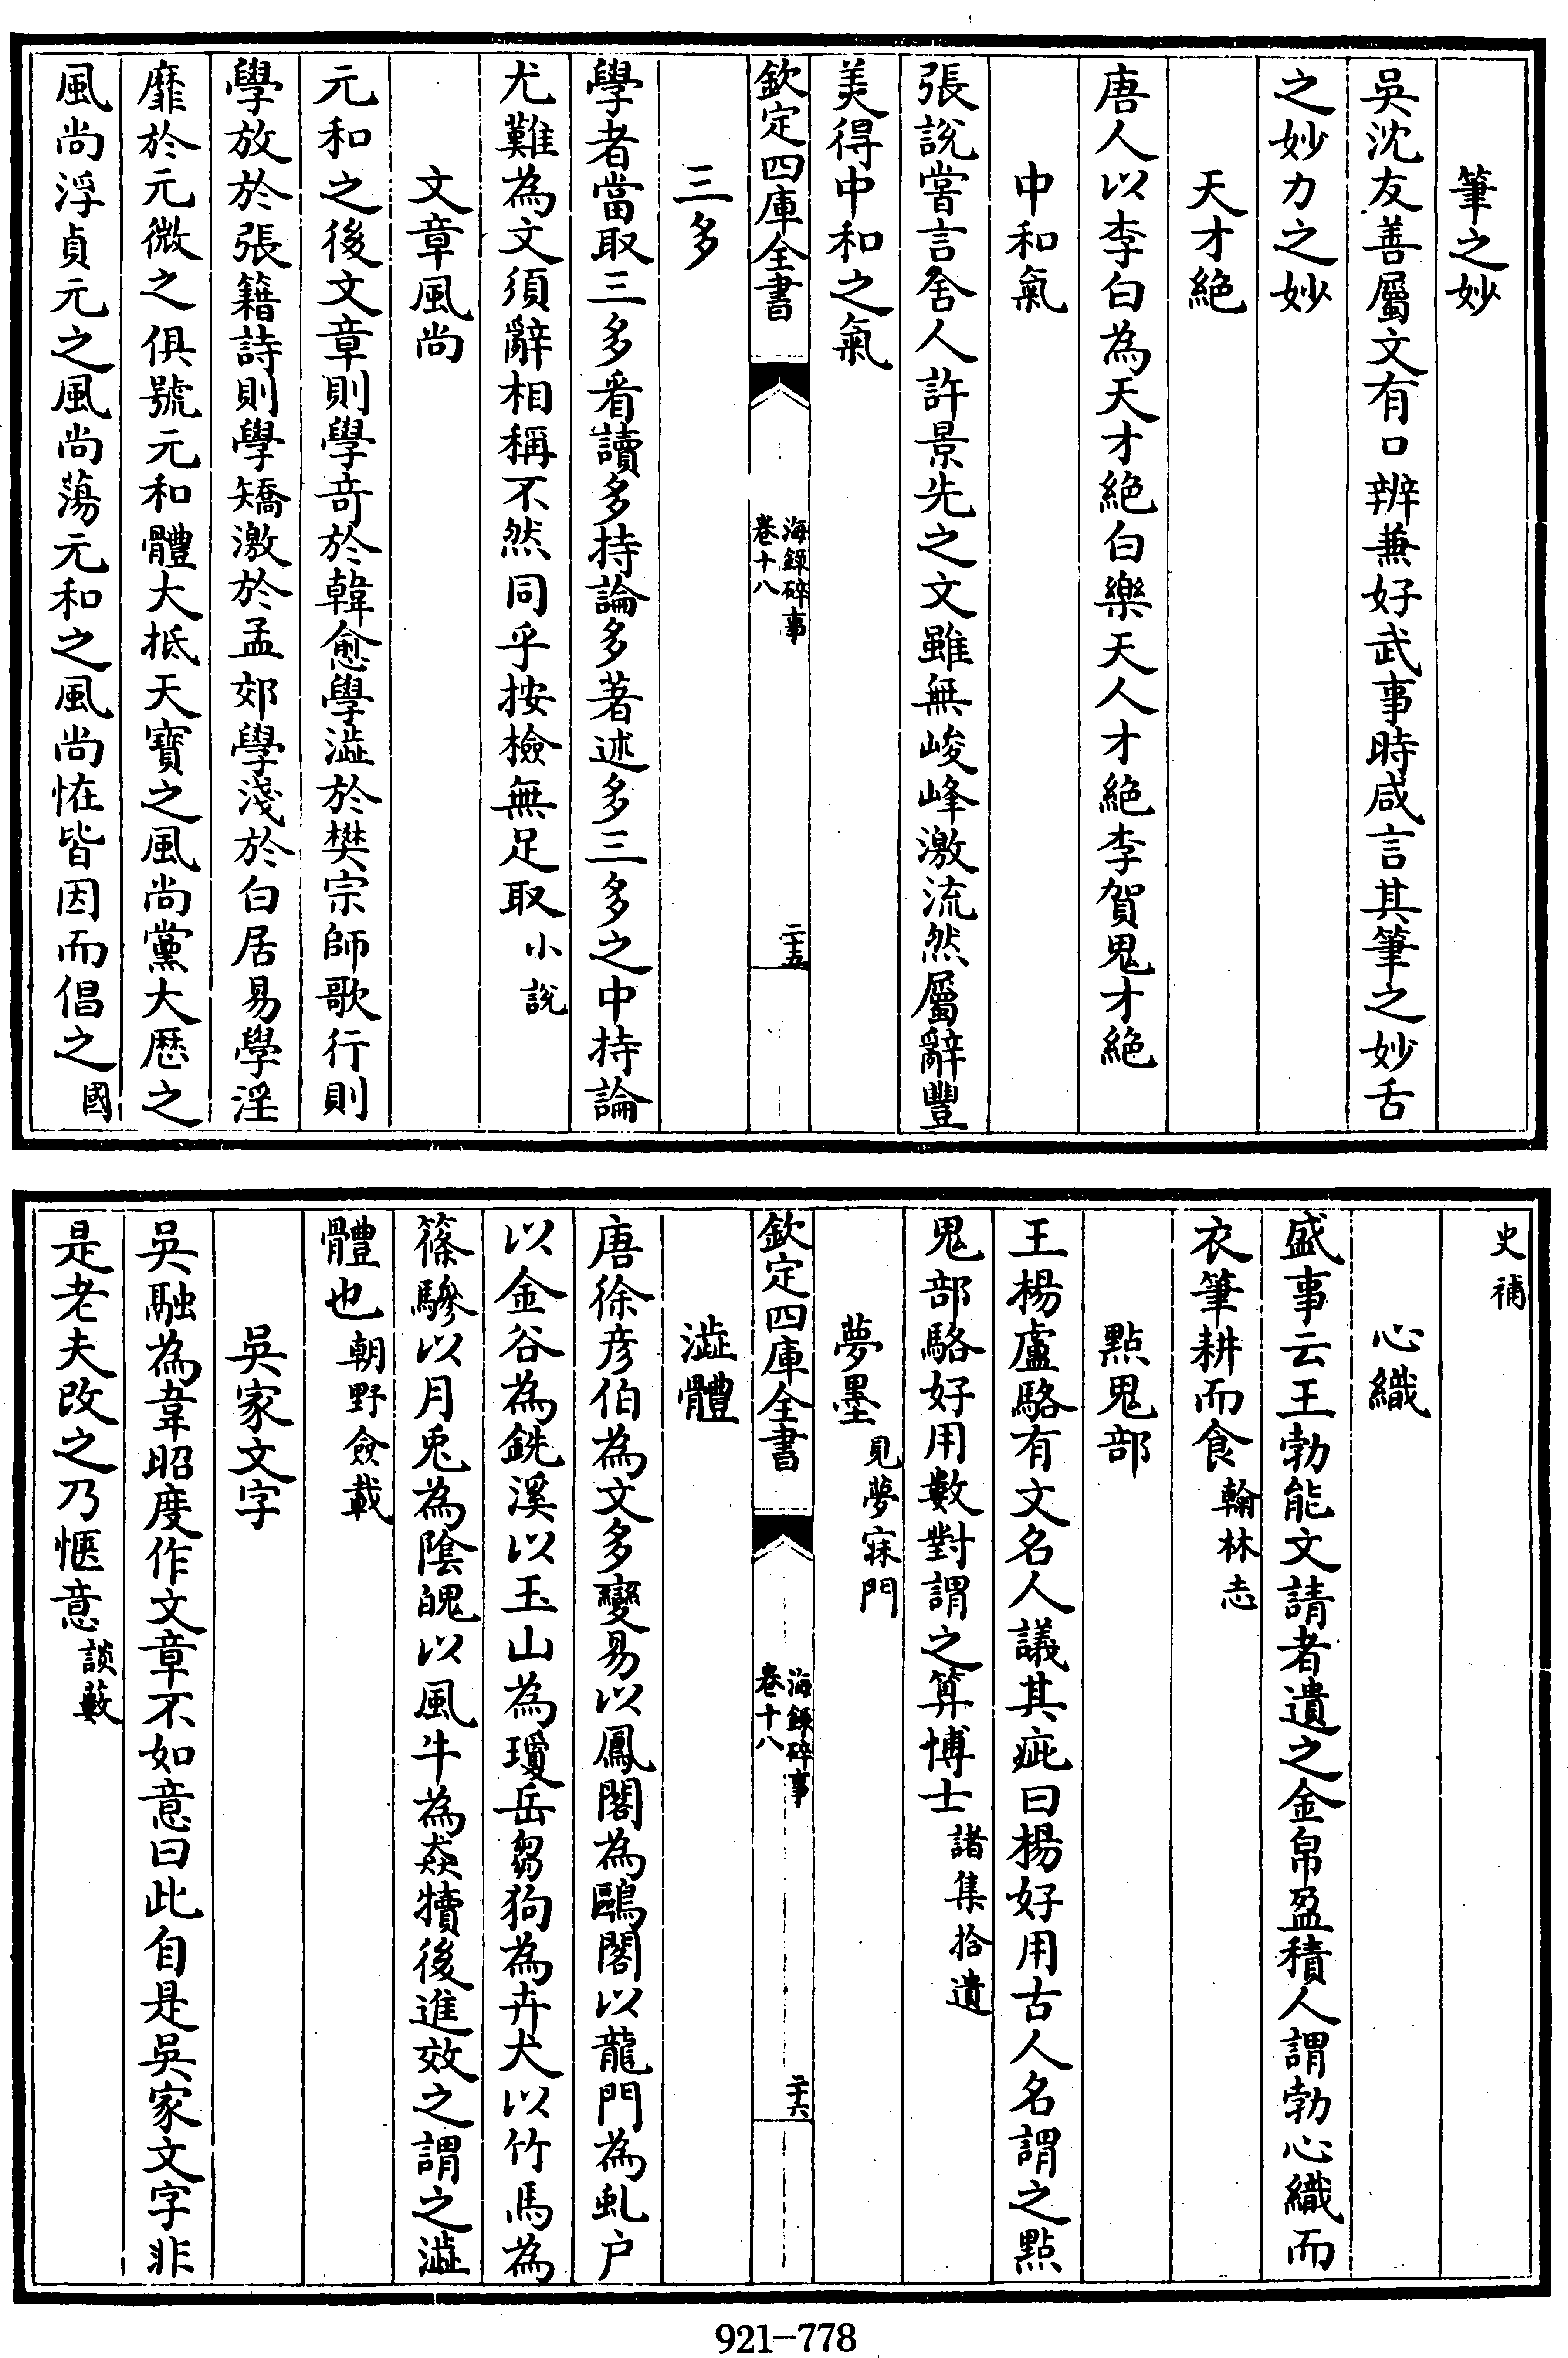 筆之妙
吳沈友善屬文有口辨兼好武事時咸言其筆之妙舌
之妙力之妙
天才絕
唐人以李白為天才絕白樂天人才絕李賀鬼才絕
中和氣
張說嘗言舍人許景先之文雖無峻峰激流然屬辭豐
美得中和之氣
欽定四庫全書
海錄碎事
卷十八
二十五
三多
學者當取三多看讀多持論多著述多三多之中持論
尤難為文須辭相稱不然同乎按檢無足取小說
文章風尚
元和之後文章則學竒於韓愈學澁於樊宗師歌行則
學放於張籍詩則學矯激於孟郊學淺於白居易學淫
靡於元微之俱號元和體大抵天寶之風尚黨大厯之
風尚浮貞元之風尚蕩元和之風尚恠皆因而倡之國
史補
心織
盛事云王勃能文請者遺之金帛盈積人謂勃心織而
衣筆耕而食翰林志
點鬼部
王楊盧駱有文名人議其疵曰楊好用古人名謂之點
鬼部駱好用數對謂之算博士諸集拾遺
夢墨見夢寐門
欽定四庫全書
海錄碎事
卷十八
二十六
澁體
唐徐彦伯為文多變易以鳳閣為鷗閣以龍門為虬户
以金谷為銑溪以玉山為瓊岳芻狗為卉犬以竹馬為
篠驂以月兎為陰魄以風牛為猋犢後進效之謂之澁
體也朝野僉載
吳家文字
吳融為韋昭度作文章不如意曰此自是吳家文字非
是老夫改之乃愜意談藪
921-778